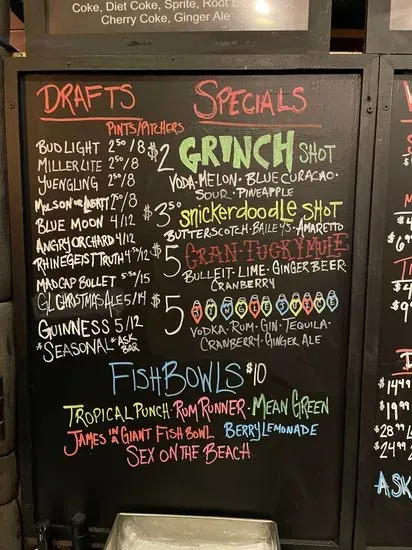 Coke, Diet Coke, Sprite, Root Be
Cherry Coke, Ginger Ale
DRAFTS
PINTS/PITCHERS
BUD LIGHT 250/8
MILLER LITE 250/8
YUENGLING 250/8
MOLSON OR LABATT 250/8
BLUE MOON 4/12
ANGRY ORCHARD 4/12
RHINEGEIST TRUTH 450/12
MADCAP BULLET 5.50/15
GL CHRISTMAS ALE 5/14
GUINNESS 5/12
*SEASONAL* ASK BAR
SPECIALS
$2 GRINCH SHOT
VODA·MELON·BLUE CURACAO·
SOUR·PINEAPPLE
$3.50 SNICKERDOODLE SHOT
BUTTERSCOTCH·BAILEY'S·AMARETTO
$5 CRAN·TUCKY MULE
BULLEIT·LIME·GINGER BEER
CRANBERRY
$5 JINGLE JUICE
VODKA·RUM·GIN·TEQUILA·
CRANBERRY·GINGER ALE
FISHBOWLS $10
TROPICAL PUNCH·RUM RUNNER·MEAN GREEN
JAMES IN A GIANT FISH BOWL BERRY LEMONADE
SEX ON THE BEACH
$14.49
$19.99
$28.99
$24.99
*ASK